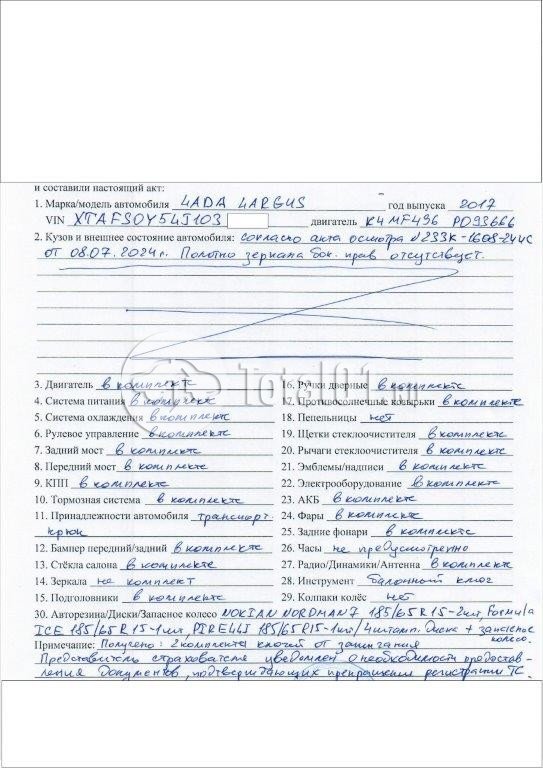 и составили настоящий акт:
1. Марка/модель автомобиля LADA LARGUS год выпуска 2017
VIN XTAFS0Y54J103 двигатель K4MF496 P093666
2. Кузов и внешнее состояние автомобиля: согласно акта осмотра N233К-1608-24ЦС
от 08.07.2024г. Полотно зеркала бок. прав отсутствует.
3. Двигатель в комплекте 16. Ручки дверные в комплекте
4. Система питания в комплекте 17. Противосолнечные козырьки в комплекте
5. Система охлаждения в комплекте 18. Пепельницы нет
6. Рулевое управление в комплекте 19. Щетки стеклоочистителя в комплекте
7. Задний мост в комплекте 20. Рычаги стеклоочистителя в комплекте
8. Передний мост в комплекте 21. Эмблемы/надписи в комплекте
9. КПП в комплекте 22. Электрооборудование в комплекте
10. Тормозная система в комплекте 23. АКБ в комплекте
11. Принадлежности автомобиля транспорт. 24. Фары в комплекте
крюк 25. Задние фонари в комплекте
12. Бампер передний/задний в комплекте 26. Часы не предусмотрено
13. Стёкла салона в комплекте 27. Радио/Динамики/Антенна в комплекте
14. Зеркала не комплект 28. Инструмент балонный ключ
15. Подголовники в комплекте 29. Колпаки колёс нет
30. Авторезина/Диски/Запасное колесо NOKIAN NORDMAN7 185/65R15-2шт, Formula
ICE 185/65R15-1шт, PIRELLI 185/65R15-1шт/4штамп. диска + запасное колесо.
Примечание: Получено: 2 комплекта ключей от зажигания
Представитель страхователя уведомлен о необходимости предостав-
ления документов, подтверждающих прекращение регистрации ТС
Total01.ru